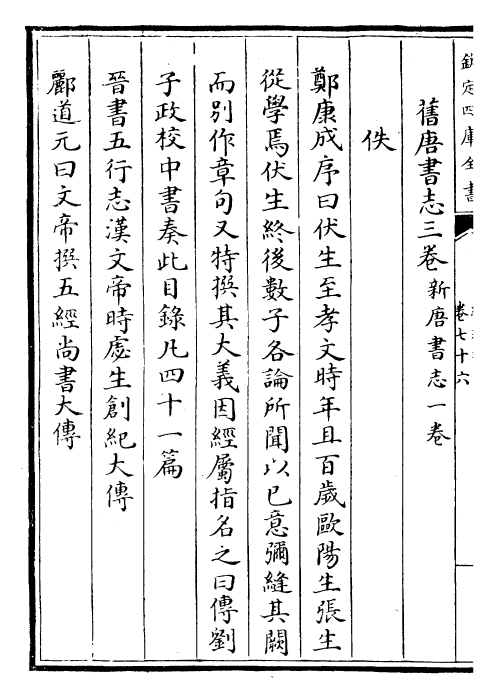 欽定四庫全書
卷七十六
舊唐書志三卷新唐書志一卷
佚
鄭康成序曰伏生至孝文時年且百歲歐陽生張生
從學焉伏生終後數子各論所聞以已意彌縫其闕
而别作章句又特撰其大義因經屬指名之曰傳劉
子政校中書奏此目錄凡四十一篇
晉書五行志漢文帝時虙生創紀大傳
酈道元曰文帝撰五經尚書大傳